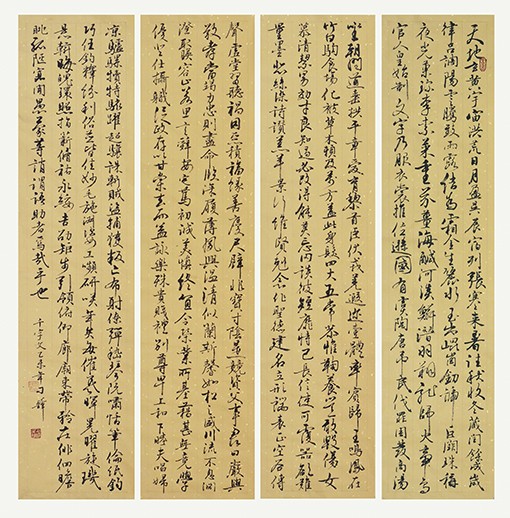 天地玄黄宇宙洪荒日月盈昃辰宿列張寒來暑往秋收冬藏閏餘成歲
律吕調陽雲騰致雨露結為霜金生麗水玉出崑岡劍號巨闕珠稱
夜光果珍李柰菜重芥薑海鹹河淡鱗潛羽翔龍師火帝鳥
官人皇始制文字乃服衣裳推位國有虞陶唐弔民伐罪周發商湯
坐朝問道垂拱平章愛育黎首臣伏戎羌遐邇壹體率賓歸王鳴鳳在
竹白駒食場化被草木賴及萬方蓋此身髮四大五常恭惟鞠養豈敢毀傷女
慕貞潔男效才良知過必改得能莫忘罔談彼短靡恃己長信使可覆器欲難
量墨悲絲染詩讚羔羊景行維賢克念作聖德建名立形端表正空谷傳
聲虛堂習聽禍因惡積福緣善慶尺璧非寶寸陰是競資父事君曰嚴與
敬孝當竭力忠則盡命臨深履薄夙興溫凊似蘭斯馨如松之盛川流不息淵
澄取映容止若思言辭安定篤初誠美慎終宜令榮業所基籍甚無竟學
優登仕攝職從政存以甘棠去而益詠樂殊貴賤禮別尊卑上和下睦夫唱婦
涼驢騾犢特駭躍超驤誅斬賊盜捕獲叛亡布射僚彈嵇琴阮嘯恬筆倫紙鈞
巧任釣釋紛利俗並皆佳妙毛施淑姿工顰妍笑年矢每催羲暉朗曜旋璣
懸斡晦魄環照指薪修祜永綏吉劭矩步引領俯仰廊廟束帶矜莊徘徊瞻
眺孤陋寡聞愚蒙等誚謂語助者焉哉乎也
千字文乙未年